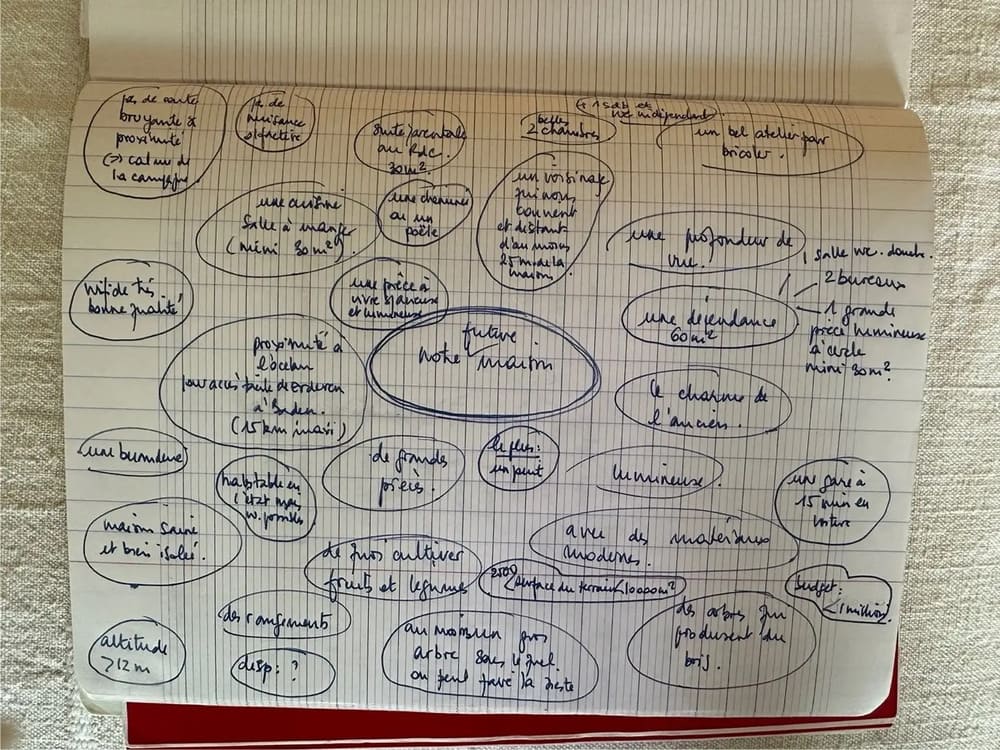 pas de route
bruyante à
proximité
(=> calme de
la campagne
pas de
nuisance
olfactive
suite parentale
au RdC.
30m².
belles
2 chambres
+ 1 sdb et
wc indépendant
un bel atelier pour
bricoler.
une cuisine
salle à manger
(mini 30m²)
une cheminée
ou un
poêle
un voisinage
qui nous
convient
et distant
d'au moins
25 m de la
maison
une profondeur de
vue.
wifi de très
bonne qualité
une pièce à
vivre spacieuse
et lumineuse
une dépendance
60m²
1 salle wc. douche.
2 bureaux
1 grande
pièce lumineuse
mini 30m².
proximité à
l'océan
pour accès facile de Erdeven
à Baden.
(15 km maxi)
future
notre maison
le charme de
l'ancien.
une buanderie
habitable en
l'état mais
de grandes
pièces.
le plus:
un puit
lumineuse.
une gare à
15 min en
voiture
maison saine
et bien isolée.
de quoi cultiver
fruits et légumes
avec des matériaux
modernes.
2500 < surface du terrain < 10000m²
budget:
< 1 million
altitude
> 12 m
des rangements
dep: ?
au moins un gros
arbre sous lequel
on peut faire la sieste
des arbres qui
produisent du
bois.